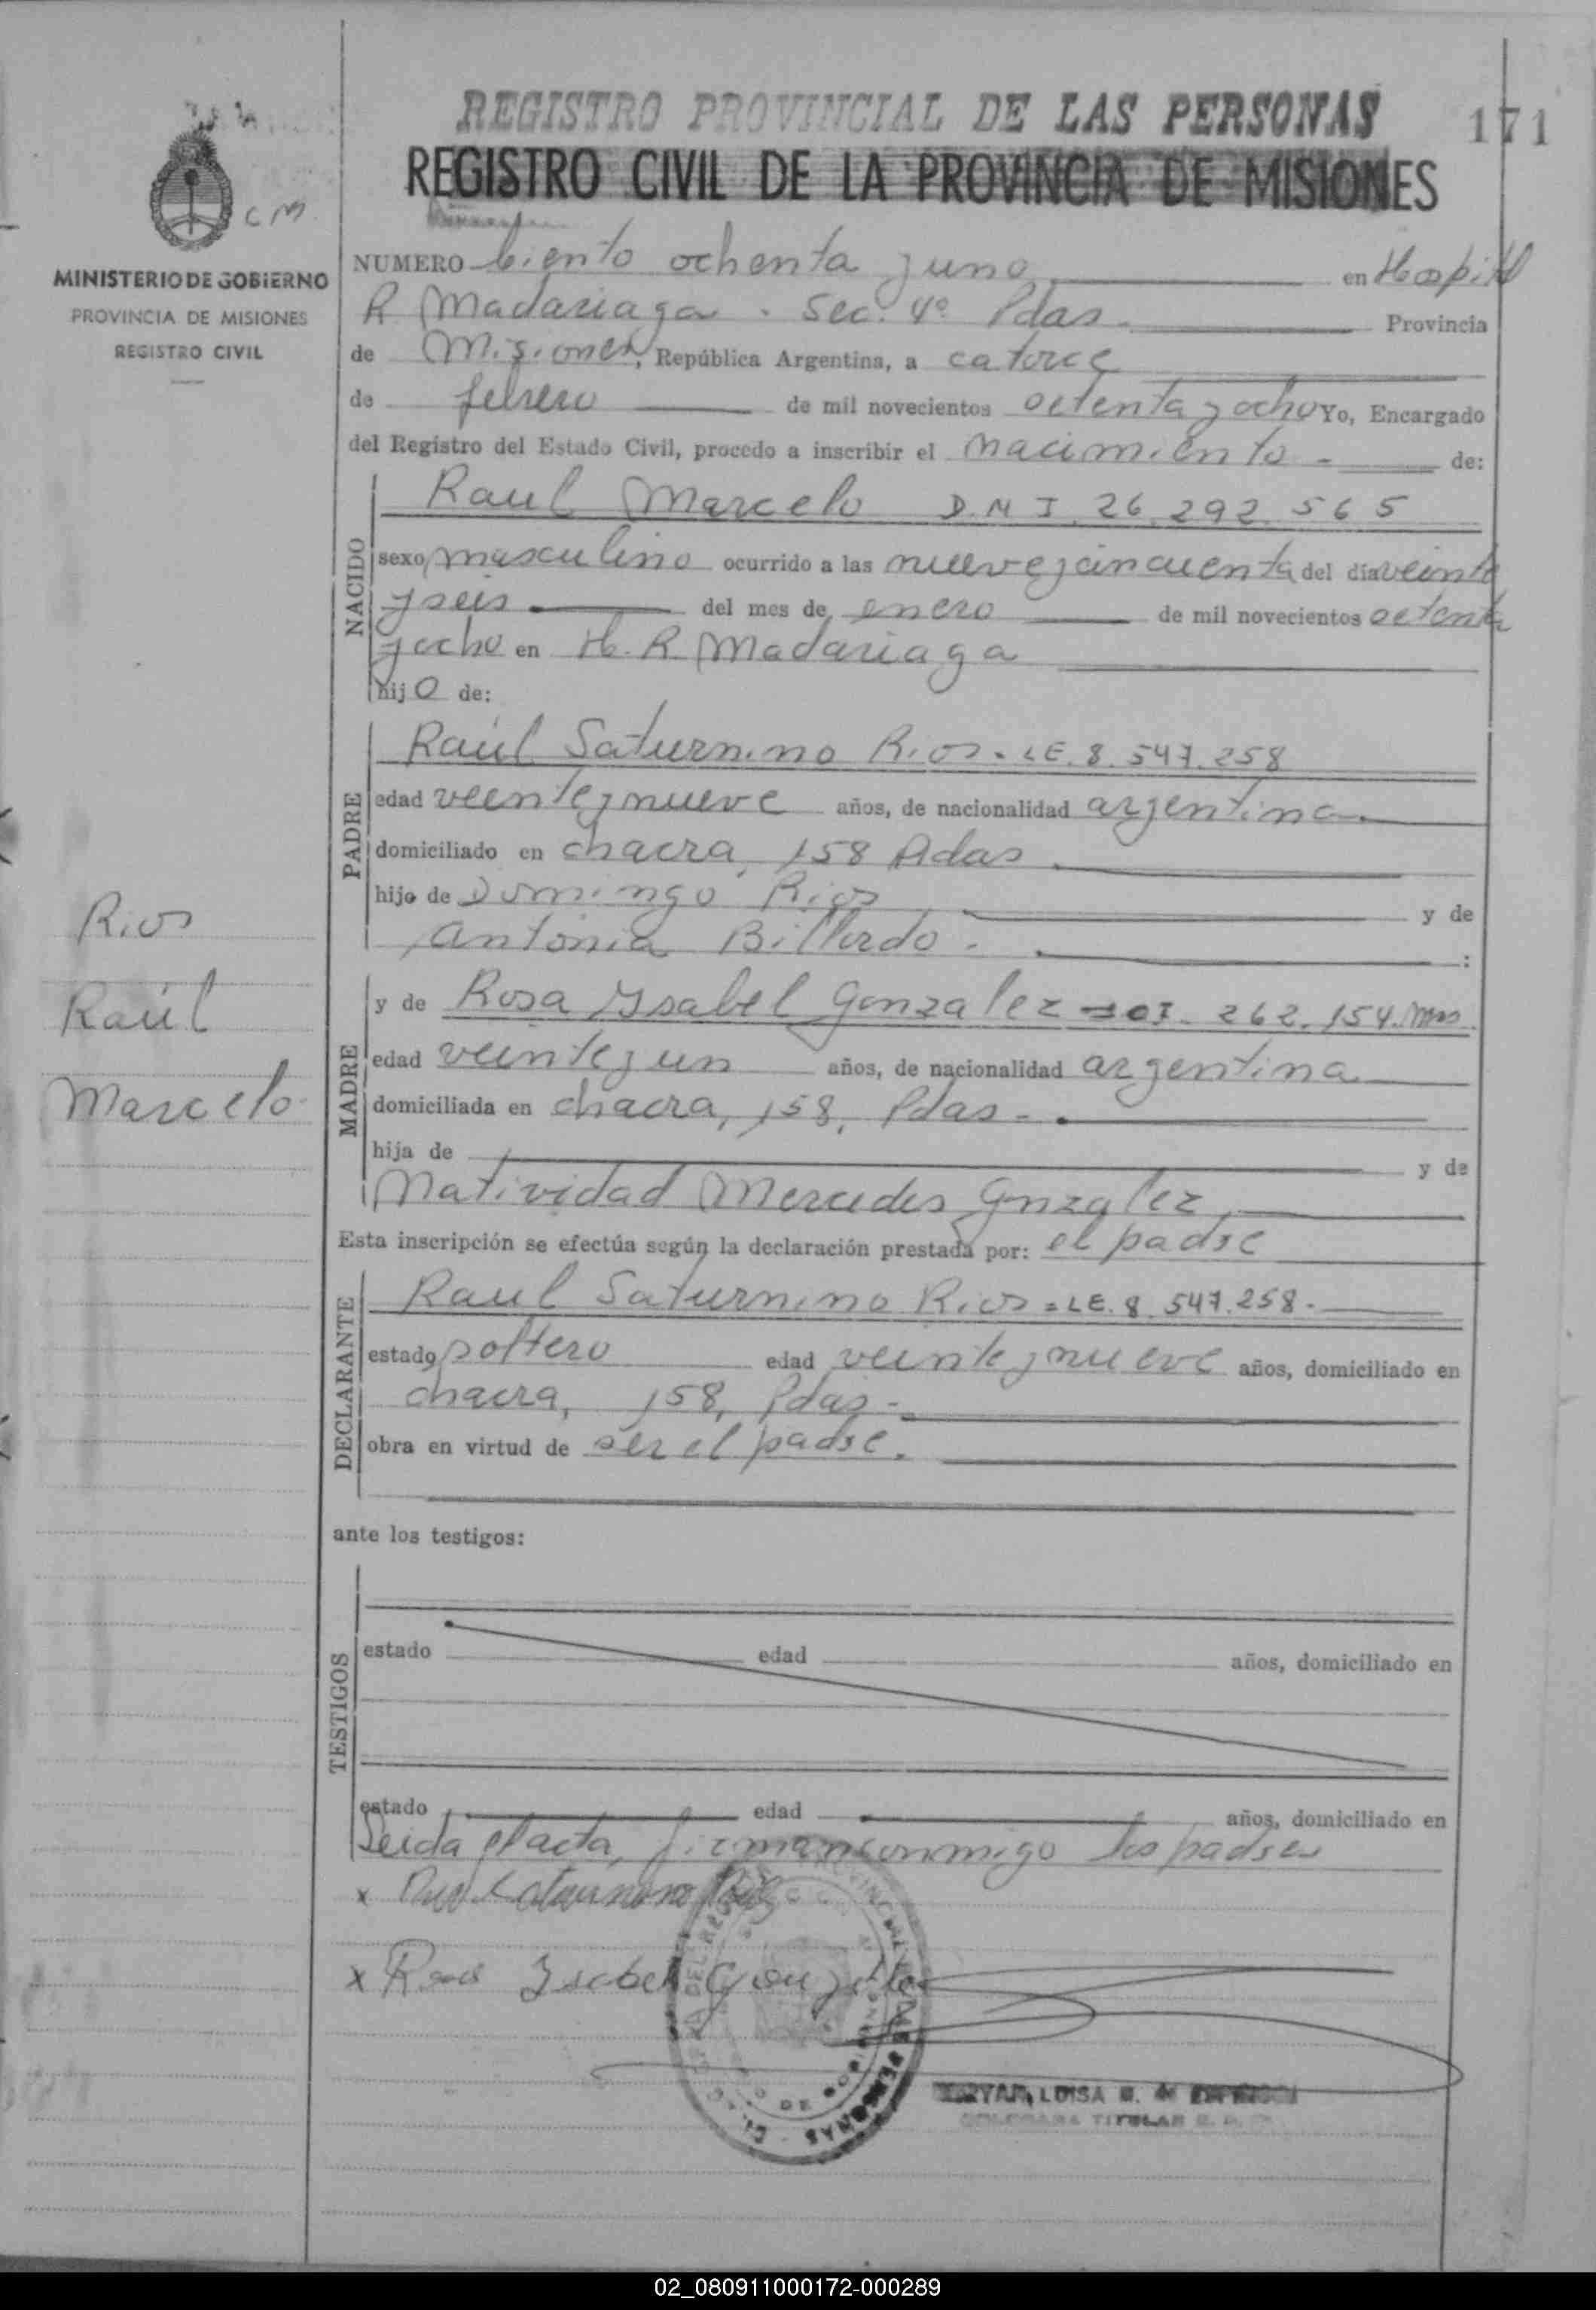 REGISTRO PROVINCIAL DE LAS PERSONAS
171
REGISTRO CIVIL DE LA PROVINCIA DE MISIONES
CM
MINISTERIO DE GOBIERNO
PROVINCIA DE MISIONES
REGISTRO CIVIL
NUMERO Ciento ochenta y uno en Hospital
R Madariaga. Sec. 4º Pdas. Provincia
de Misiones, República Argentina, a catorce
de febrero de mil novecientos setenta y ocho Yo, Encargado
del Registro del Estado Civil, procedo a inscribir el nacimiento - de:
NACIDO
Raul Marcelo D.N.I. 26.292.565
sexo masculino ocurrido a las nueve y cincuenta del día veinte
y seis del mes de enero de mil novecientos setenta
y ocho en H. R. Madariaga
hijo de:
PADRE
Raúl Saturnino Rios. LE. 8.547.258
edad veinte y nueve años, de nacionalidad argentina.
domiciliado en chacra, 158 Pdas.
hijo de Domingo Rios y de
Antonia Billordo. :
Rios
Raúl
Marcelo
MADRE
y de Rosa Ysabel Gonzalez 262.154. Mns
edad veinte y un años, de nacionalidad argentina
domiciliada en chacra, 158, Pdas.
hija de y de
Natividad Mercedes Gnzalez,
Esta inscripción se efectúa según la declaración prestada por: el padre
DECLARANTE
Raul Saturnino Rios = LE. 8.547.258.
estado soltero edad veinte y nueve años, domiciliado en
chacra, 158, Pdas.
obra en virtud de ser el padre.
ante los testigos:
TESTIGOS
estado edad años, domiciliado en
estado edad años, domiciliado en
Leida el acta, firman conmigo los padres
x Saturnino
x Rosa Isabel Gonzalez
LUISA
TITULAR
02_080911000172-000289